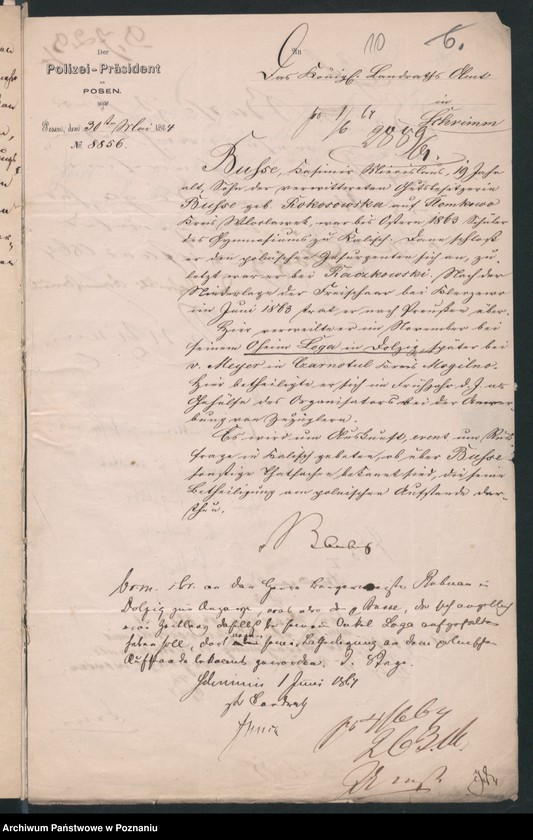 Der
Polizei-Präsident
zu
POSEN.
Posen, den 30ten Mai 1864
№ 8856.
An
10
6.
Das Königl. Landraths Amt
in
Schrimm
1/6 64
2889
Busse, Kasimir Miecislaus, 19 Jahr
alt, Sohn der verwittweten Gutsbesitzerin
Busse geb. Kokosowska auf Slomkowo
Kreis Wloclawek, war bis Ostern 1863 Schüler
des Gymnasiums zu Kalisch. Dann schloß
er den polnischen Insurgenten sich an, zu-
letzt war er bei Raczkowski. Nach der
Niederlage der Freischaar bei
im Juni 1863 trat er nach Preußen über.
Hier verweilte er im November bei
seinem Oheim Loga in Dolzig, später bei
v. Meyer in Czarnotul Kreis Mogilno.
Hier betheiligte er sich im Frühjahr d. J. als
Gehülfe des Organisators bei der Anwer-
bung von Zuzüglern.
Es wird um Auskunft, event. um Rück-
frage in Kalisch gebeten, ob über Busse
sonstige Thatsachen bekannt sind, die seine
Betheiligung am polnischen Aufstande dar-
thun.
an den Herrn Bürgermeister
Dolzig zur Anzeige, was über p Busse, der sich angeblich
eine Zeitlang daselbst bei seinem Onkel Loga aufgehalten
haben soll, dort wegen seiner Betheiligung an dem polnischen
Aufstande bekannt geworden. 3 Tage.
Schrimm 1 Juni 1864
Der Landrath
pr 4/6 64
263.